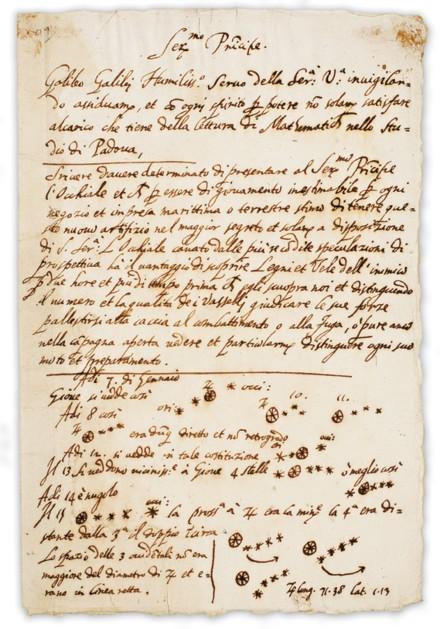 Ser.mo Principe.
Galileo Galilei Humiliss.o Servo della Ser.a V.a invigilan-
do assiduam.te, et cõ ogni spirito p potere nõ solam.te satisfare
alcarico che tiene della lettura di Mathematich nello Stu-
dio di Padova,
Scrivere davere determinato di presentare al Ser.mo Principe
l'Occhiale et p essere di giovamento inestimabile p ogni
negozio et impresa marittima o terrestre stimo di tenere que-
sto nuovo artifizio nel maggior segreto et solam.te a disposizione
di S. Ser.a L'Occhiale cavato dalle più recondite speculazioni di
prospettiva hà il vantaggio di scoprire Legni et Vele dell'inimico
p due hore et più di tempo prima ch egli scuopra noi et distinguendo
il numero et la qualità dei Vasselli giudicare le sue forze
pallestirsi alla caccia al combattimento o alla fuga, o pure anco
nella capagna aperta vedere et particolarm.te distinguere ogni suo
moto et preparamento.
Adi 7. di Gennaio
Giove si vede così
ori: occi:
10. 11.
Adi 8 così
era dunq diretto et nõ retrogrado
Adi 12. si vedde in tale costituzione
Il 13 si veddono vicinissime à Giove 4 stelle ò meglio così
Adi 14 è nugolo
Il 15 la pross.a à ♃ era la min.e la 4.a era di-
stante dalla 3.a il doppio
Lo spazio delle 3 occidentali nõ era
maggiore del diametro di ♃ et e-
rano in linea retta.
♃ long. 71.38 lat. 1.13